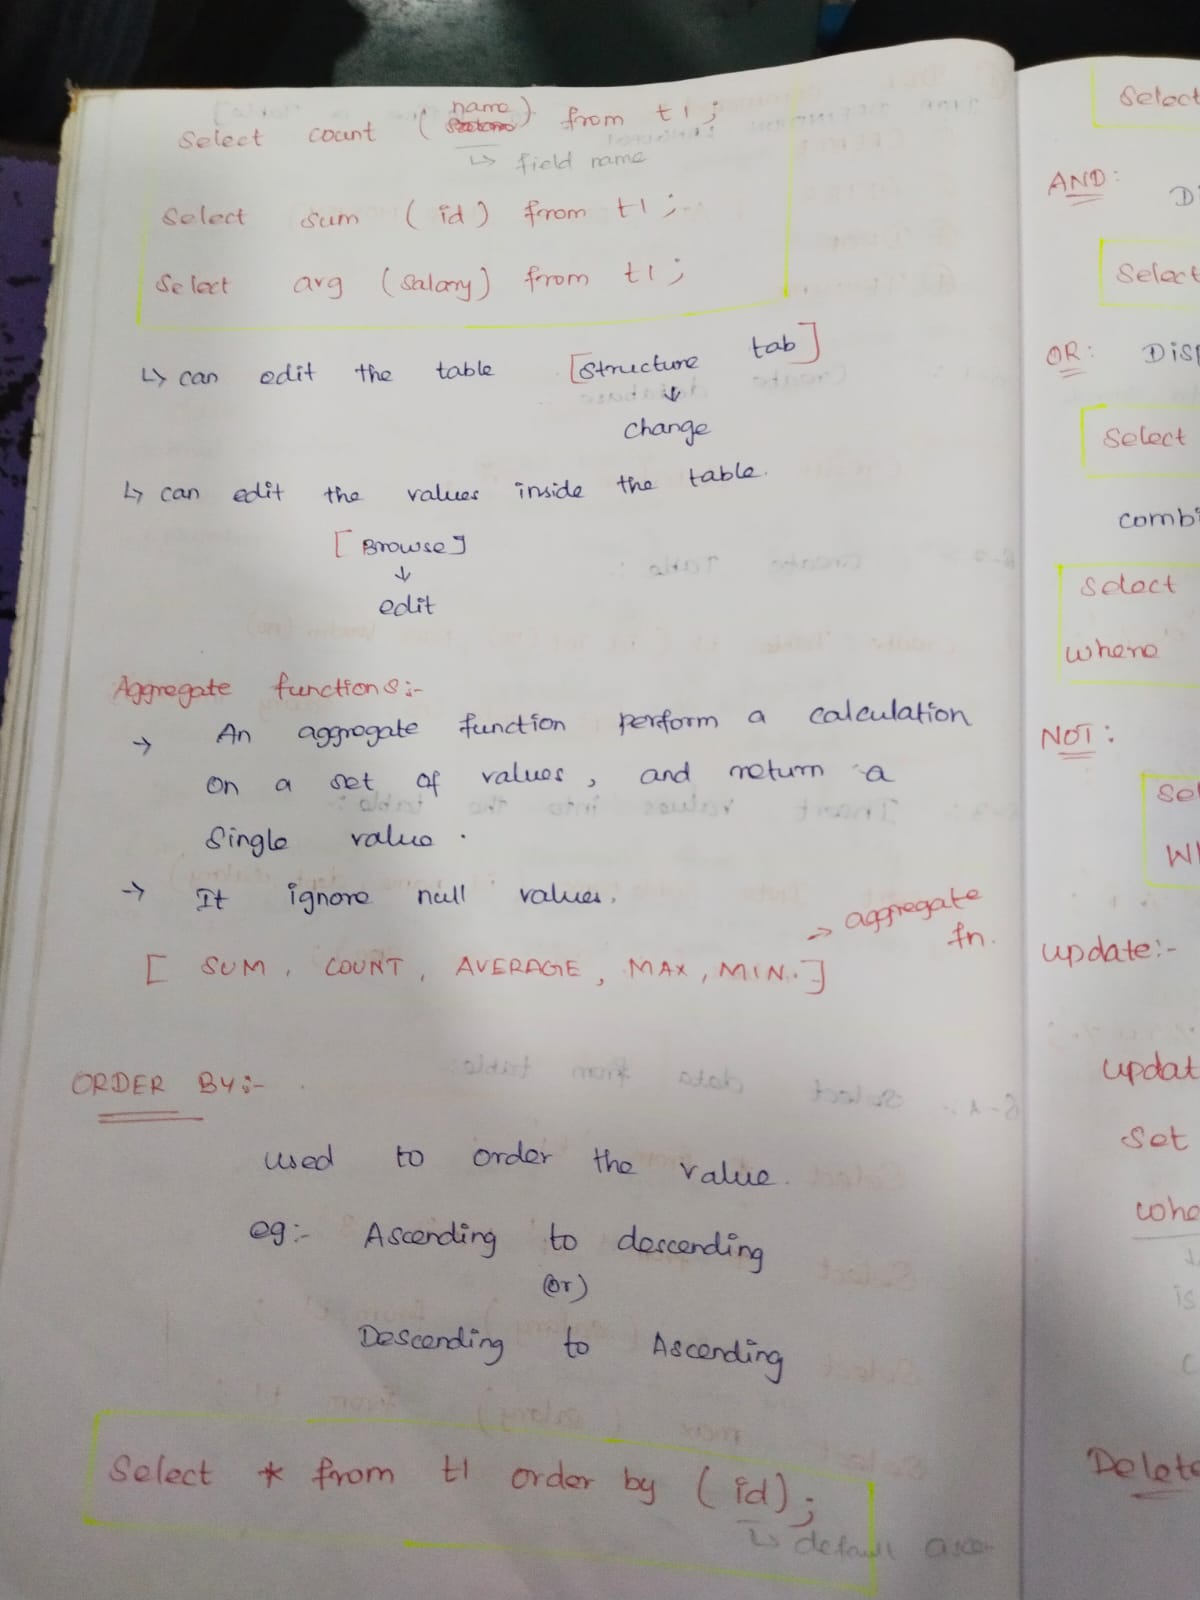 Select count (name) from t1;
↳ field name
Select sum (id) from t1;
Select avg (salary) from t1;
↳ can edit the table [structure tab]
↓
change
↳ can edit the values inside the table.
[Browse]
↓
edit
Aggregate functions:-
→ An aggregate function perform a calculation
on a set of values, and return a
single value.
→ It ignore null values.
→ aggregate
fn.
[ SUM, COUNT, AVERAGE, MAX, MIN.]
ORDER BY:-
used to order the value.
eg:- Ascending to descending
(or)
Descending to Ascending
Select * from t1 order by (id);
↳ default
Select
AND:
Select
OR:
Select
Select
where
NOT:
update:-
set
Delete